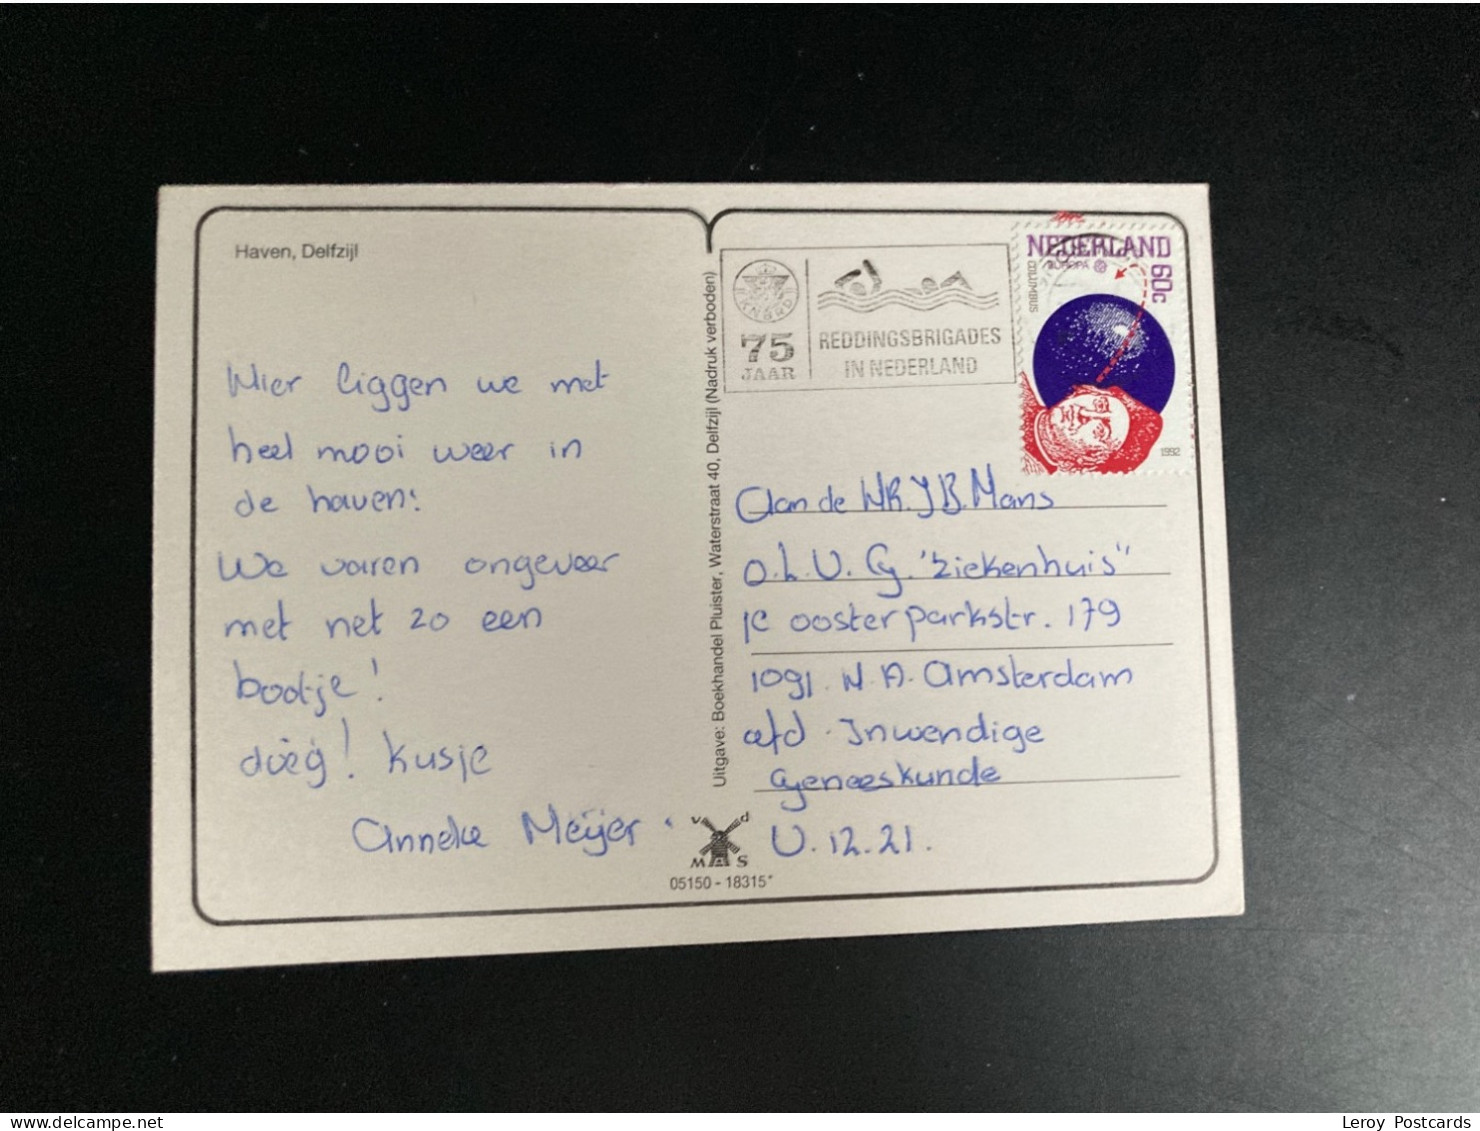 Haven, Delfzijl
Hier liggen we met
heel mooi weer in
de haven!
We varen ongeveer
met net zo een
bootje!
doeg! Kusje
Anneke Meijer.
Uitgave: Boekhandel Pluister, Waterstraat 40, Delfzijl (Nadruk verboden)
v d
M A S
05150 - 18315*
KNBRD
75
JAAR
REDDINGSBRIGADES
IN NEDERLAND
NEDERLAND
EUROPA
COLUMBUS
60c
1992
Aan de Hr. J B. Mans
O.L.V. G. "Ziekenhuis"
1e oosterparkstr. 179
1091. H.A. Amsterdam
afd. Inwendige
Geneeskunde
U.12.21.
Leroy Postcards